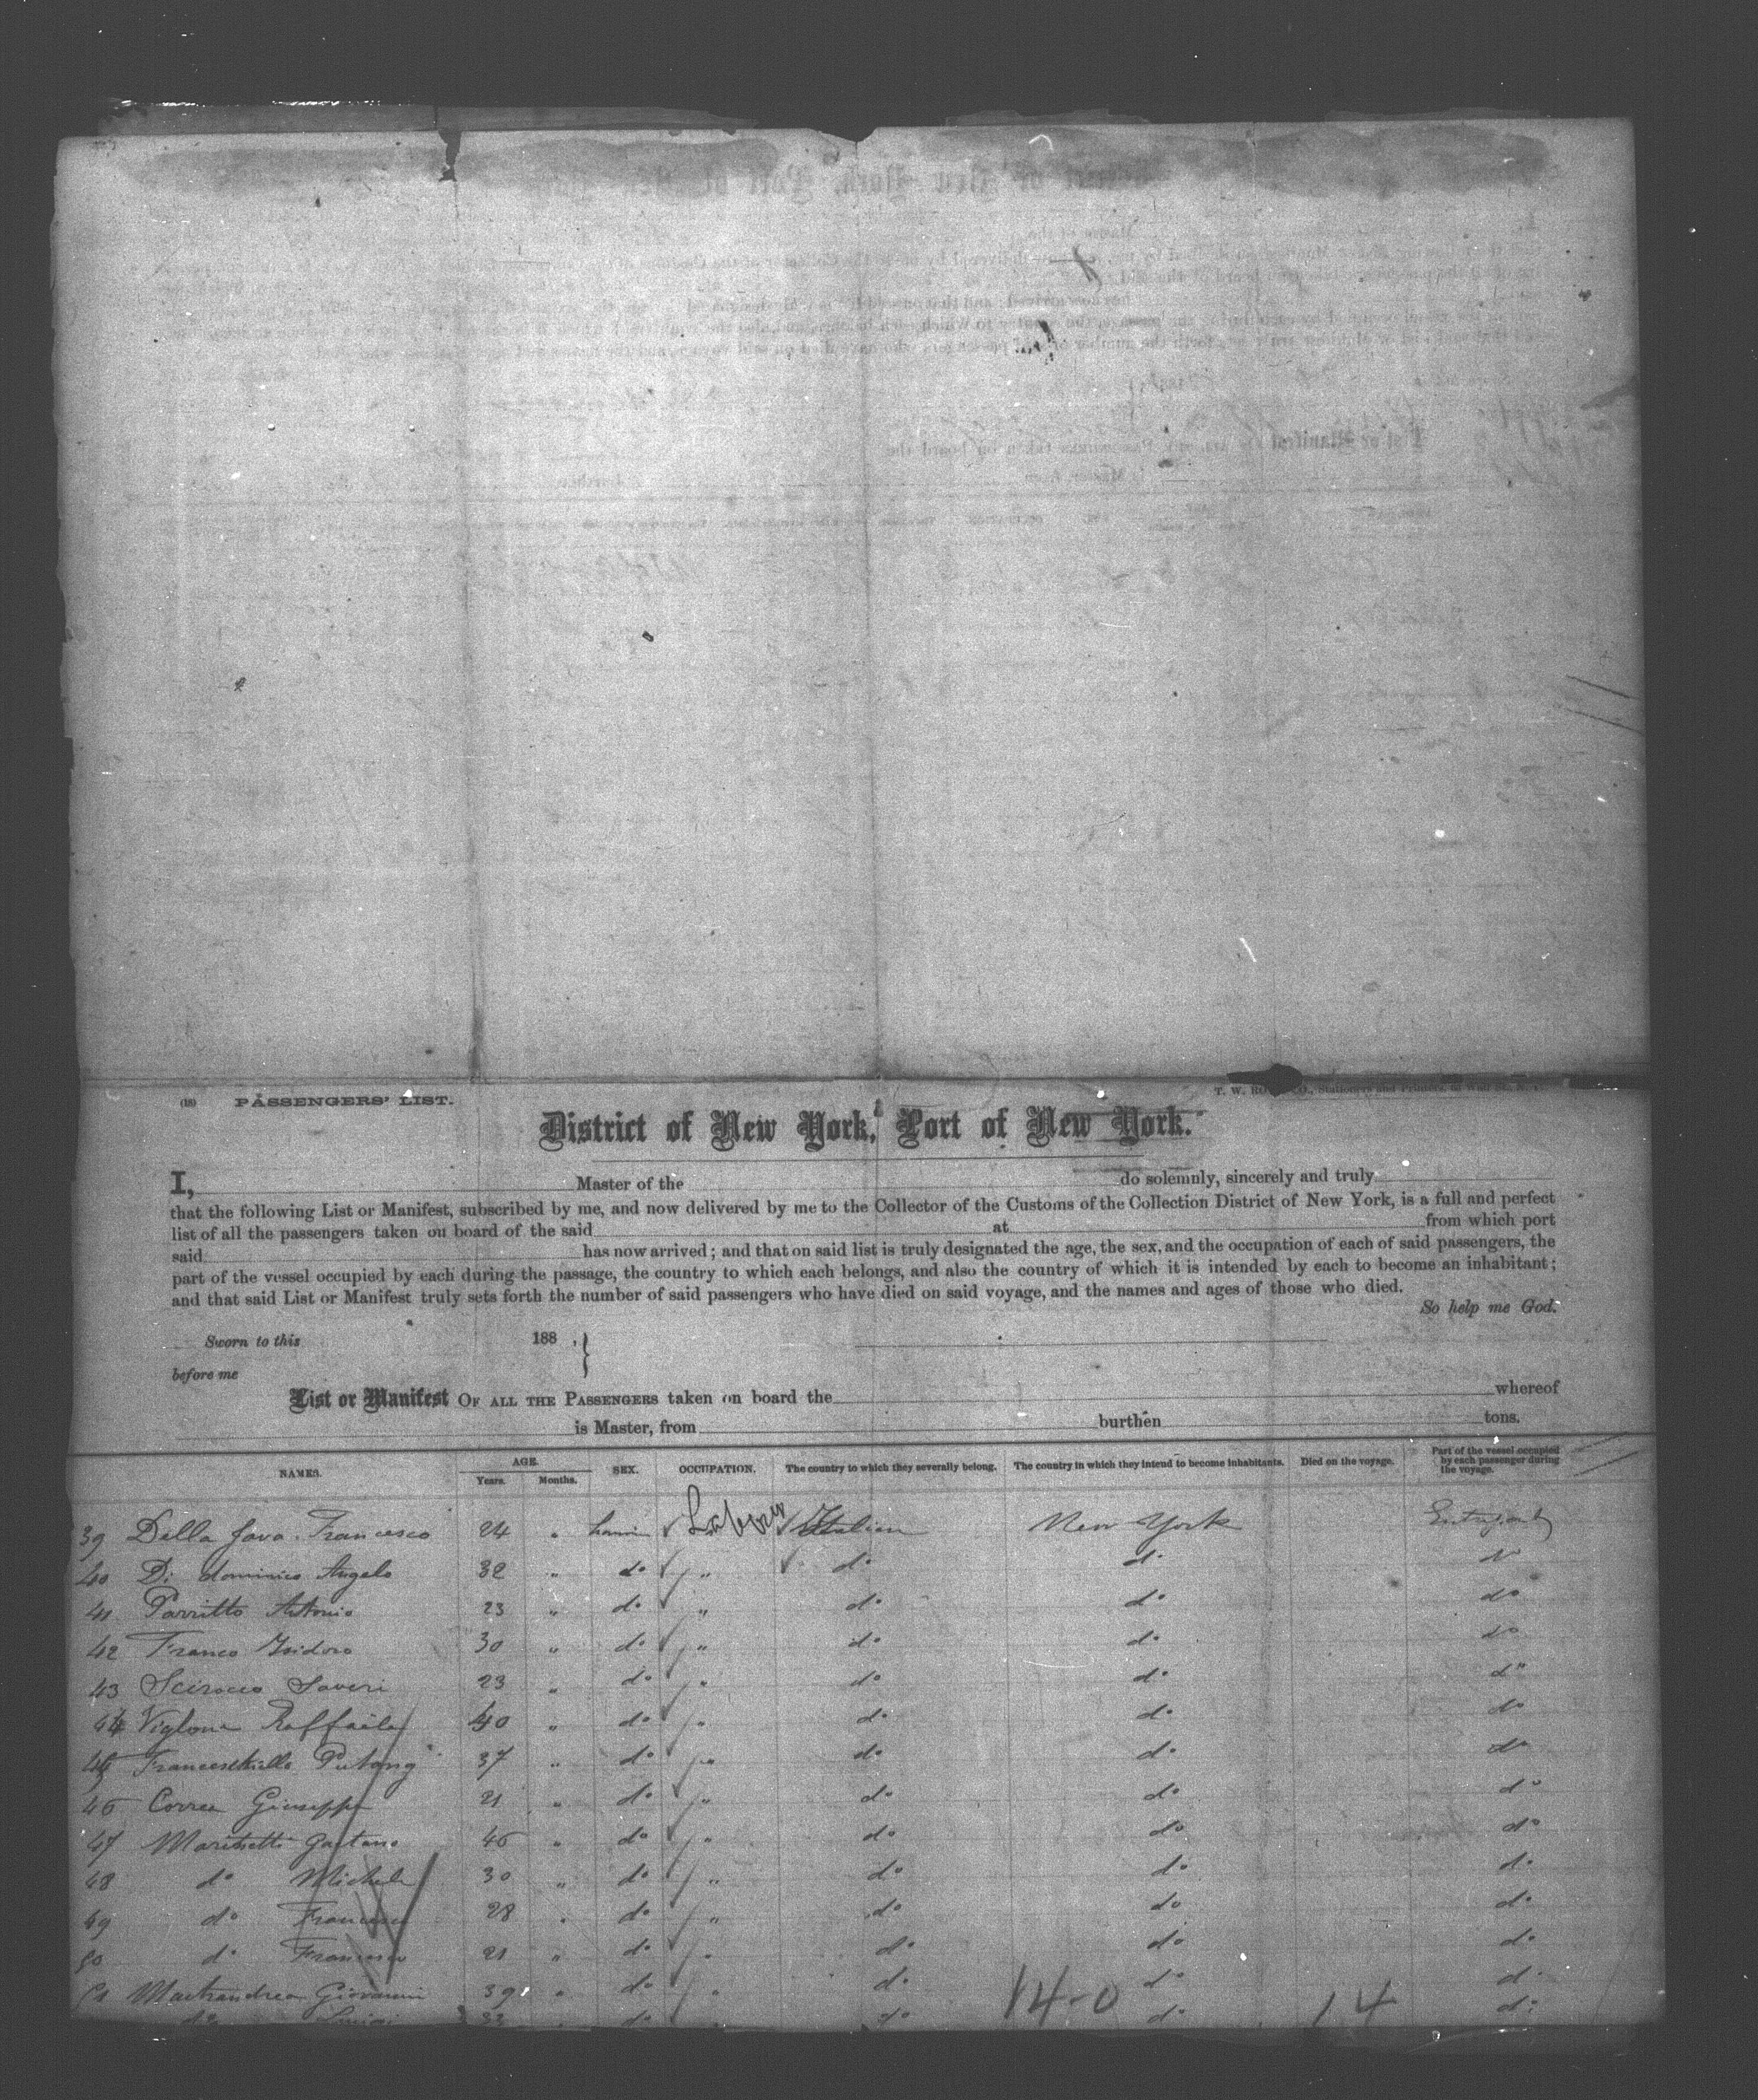 (18) PASSENGERS' LIST.
T. W. CO., Stationers and Printers, Wall St., N. Y.
District of New York, Port of New York.
I, Master of the do solemnly, sincerely and truly
that the following List or Manifest, subscribed by me, and now delivered by me to the Collector of the Customs of the Collection District of New York, is a full and perfect
list of all the passengers taken on board of the said at from which port
said has now arrived; and that on said list is truly designated the age, the sex, and the occupation of each of said passengers, the
part of the vessel occupied by each during the passage, the country to which each belongs, and also the country of which it is intended by each to become an inhabitant;
and that said List or Manifest truly sets forth the number of said passengers who have died on said voyage, and the names and ages of those who died.
So help me God.
Sworn to this 188 .
before me
List or Manifest OF ALL THE PASSENGERS taken on board the whereof
is Master, from burthen tons.
NAMES. AGE. Years. Months. SEX. OCCUPATION. The country to which they severally belong. The country in which they intend to become inhabitants. Died on the voyage. Part of the vessel occupied by each passenger during the voyage.
39 Della Fava Francesco 24 " Labour Italian New York
40 Di dominico Angelo 32 " do " do do
41 Parritto Antonio 23 " do " do do do
42 Franco Isidoro 30 " do " do do do
43 Scirocco Saveri 23 " do " do do do
44 Viglone Raffaele 40 " do " do do do
45 Franceschiello 37 " do " do do do
46 Correa Giuseppe 21 " do " do do do
47 Marchetti Gaetano 46 " do " do do do
48 do Michele 30 " do " do do do
49 do Francesco 28 " do " do do do
50 do Francesco 21 " do " do do do
51 Mastrandrea Giovanni 39 " do " do do do
do Luigi 33 " do " do do do
14-0 14